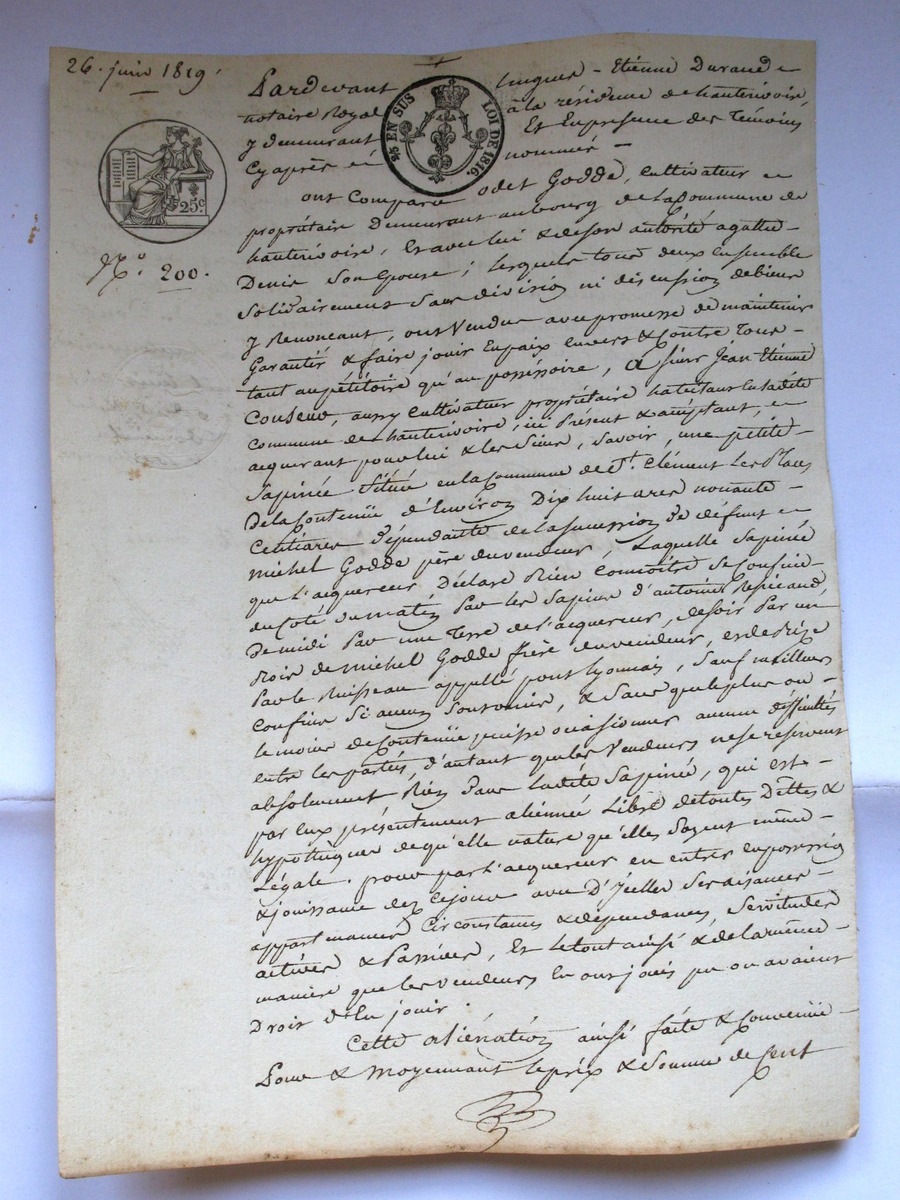 26. juin 1819.
Pardevant hugues - Etiénne Durand
notaire Royal à la résidence de hauterivoire,
y demeurant Et En presence des Témoins
Cyaprès nommés -
EN SUS LOI DE 1816
25c
No. 200.
ont Comparu odet Godde, Cultivateur
propriétaire Demeurant au bourg de la Commune de
hauterivoire, Et avec lui & de son autorité agatte
Denis Son Epouse; lesquels tous deux Ensemble
Solidairement Sans division ni discussion de biens
y Renoncant, ont Vendu avec promesse de maintenir
Garantir & faire jouir En paix envers & Contre Tous
tant au pétitoire qu'au posséssoire, a sieur Jean Etiénne
aussy Cultivateur propriétaire habitant en ladite
Commune de hauterivoire, ici Présent & acceptant,
acquerant pour lui & les Siens, Savoir, une petite
Sapinée Située en la Commune de St. Clément Les Places
De la Contenüe d'Environ Dix huit ares nonante
Centiares Dépendante de la Succession de défunt
michel Godde père du vendeur, Laquelle Sapinée
que l'acquereur Déclare Bien Connoitre Se Confine
du Coté du matin Par les Sapins d'antoine
De midi Par une Terre de l'acquereur, de Soir Par un
Bois de michel Godde frère du vendeur, et de Bize
Par le Ruisseau appellé pont Lyonnais, Sauf meilleurs
Confins Si aucuns Sont omis, & Sans que le plus ou
le moins de Contenüe puisse occasionner aucune difficultés
entre les parties, d'autant que les Vendeurs ne se réservent
absolument Rien Dans ladite Sapinée, qui est
par Eux présentement aliénnée Libre de toutes Dettes &
hypothèques de qu'elle nature qu'elles Soyent même
Légale. pour par l'acquereur en entrer en possession
& jouissance dez Cejour avec D'Icelles Ses aisances
appartenances Circonstances & dépendances, Servitudes
actives & Passives, Et le tout ainsi & de la même
manière que les vendeurs En ont jouis pu ou avaient
Droit d'En jouir.
Cette aliénation ainsi faite & Convenüe
Pour & moyennant le prix & Somme de Cent